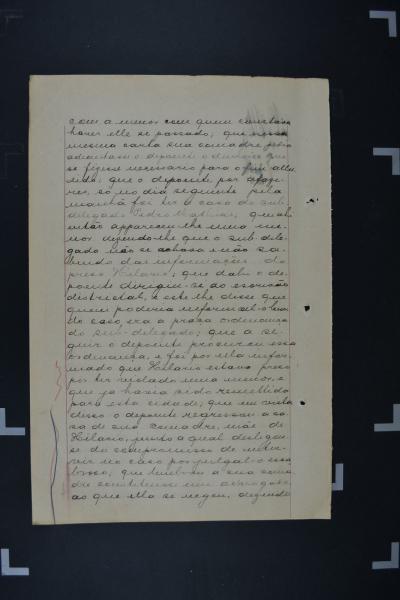 com a menor com quem constava
haver elle se passado; que nessa
mesma carta sua comadre pedia
ao depoente o dinheiro que
se fizesse necessario para o fim allu-
dido; que o depoente, por
só no dia seguinte pela
manhã foi ter á casa do sub-
delegado Pedro quando
então appareceu-lhe uma me-
nor dizendo-lhe que o sub-dele-
gado não se achava e não sa-
bendo das informações do
preso Hilario; que dahi o de-
poente dirigiu-se ao escrivão
districtal, e este lhe disse que
quem poderia informal-o bem
do caso, era a praça ordenança
do sub-delegado; que a se-
guir o depoente procurou essa
ordenança, e foi por ella infor-
mado que Hilario estava preso
por ter violado uma menor, e
que já havia sido remettido
para esta cidade; que em vista
disso o depoente regressou a ca-
sa de sua comadre, mãe de
Hilario, junto a qual desligou-
se do compromisso de inter-
vir no caso por julgal-o
que lembrou a sua coma-
dre constituisse um advogado
ao que ella se negou, dizendo